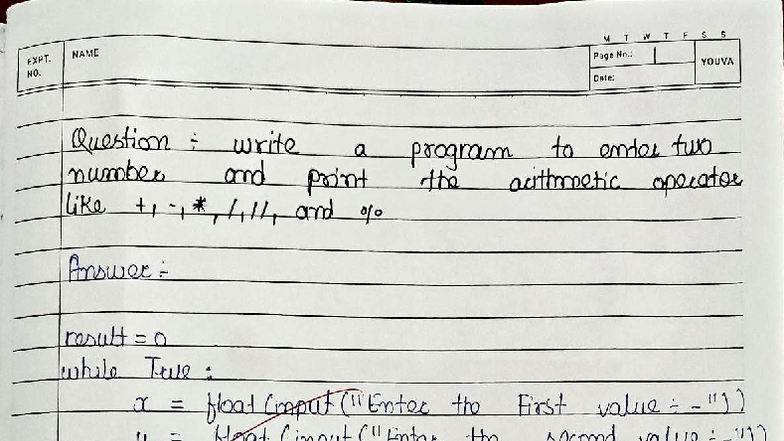 M T W T F S S
EXPT. NO.
NAME
Page No.: 1
Date:
YOUVA
Question :- write a program to enter two
number and print the arithmetic operator
like +, -, *, /, //, and %
Answer :-
result = 0
while True :
x = float (input ("Enter the First value :- "))
y = float (input ("Enter the second value :- "))